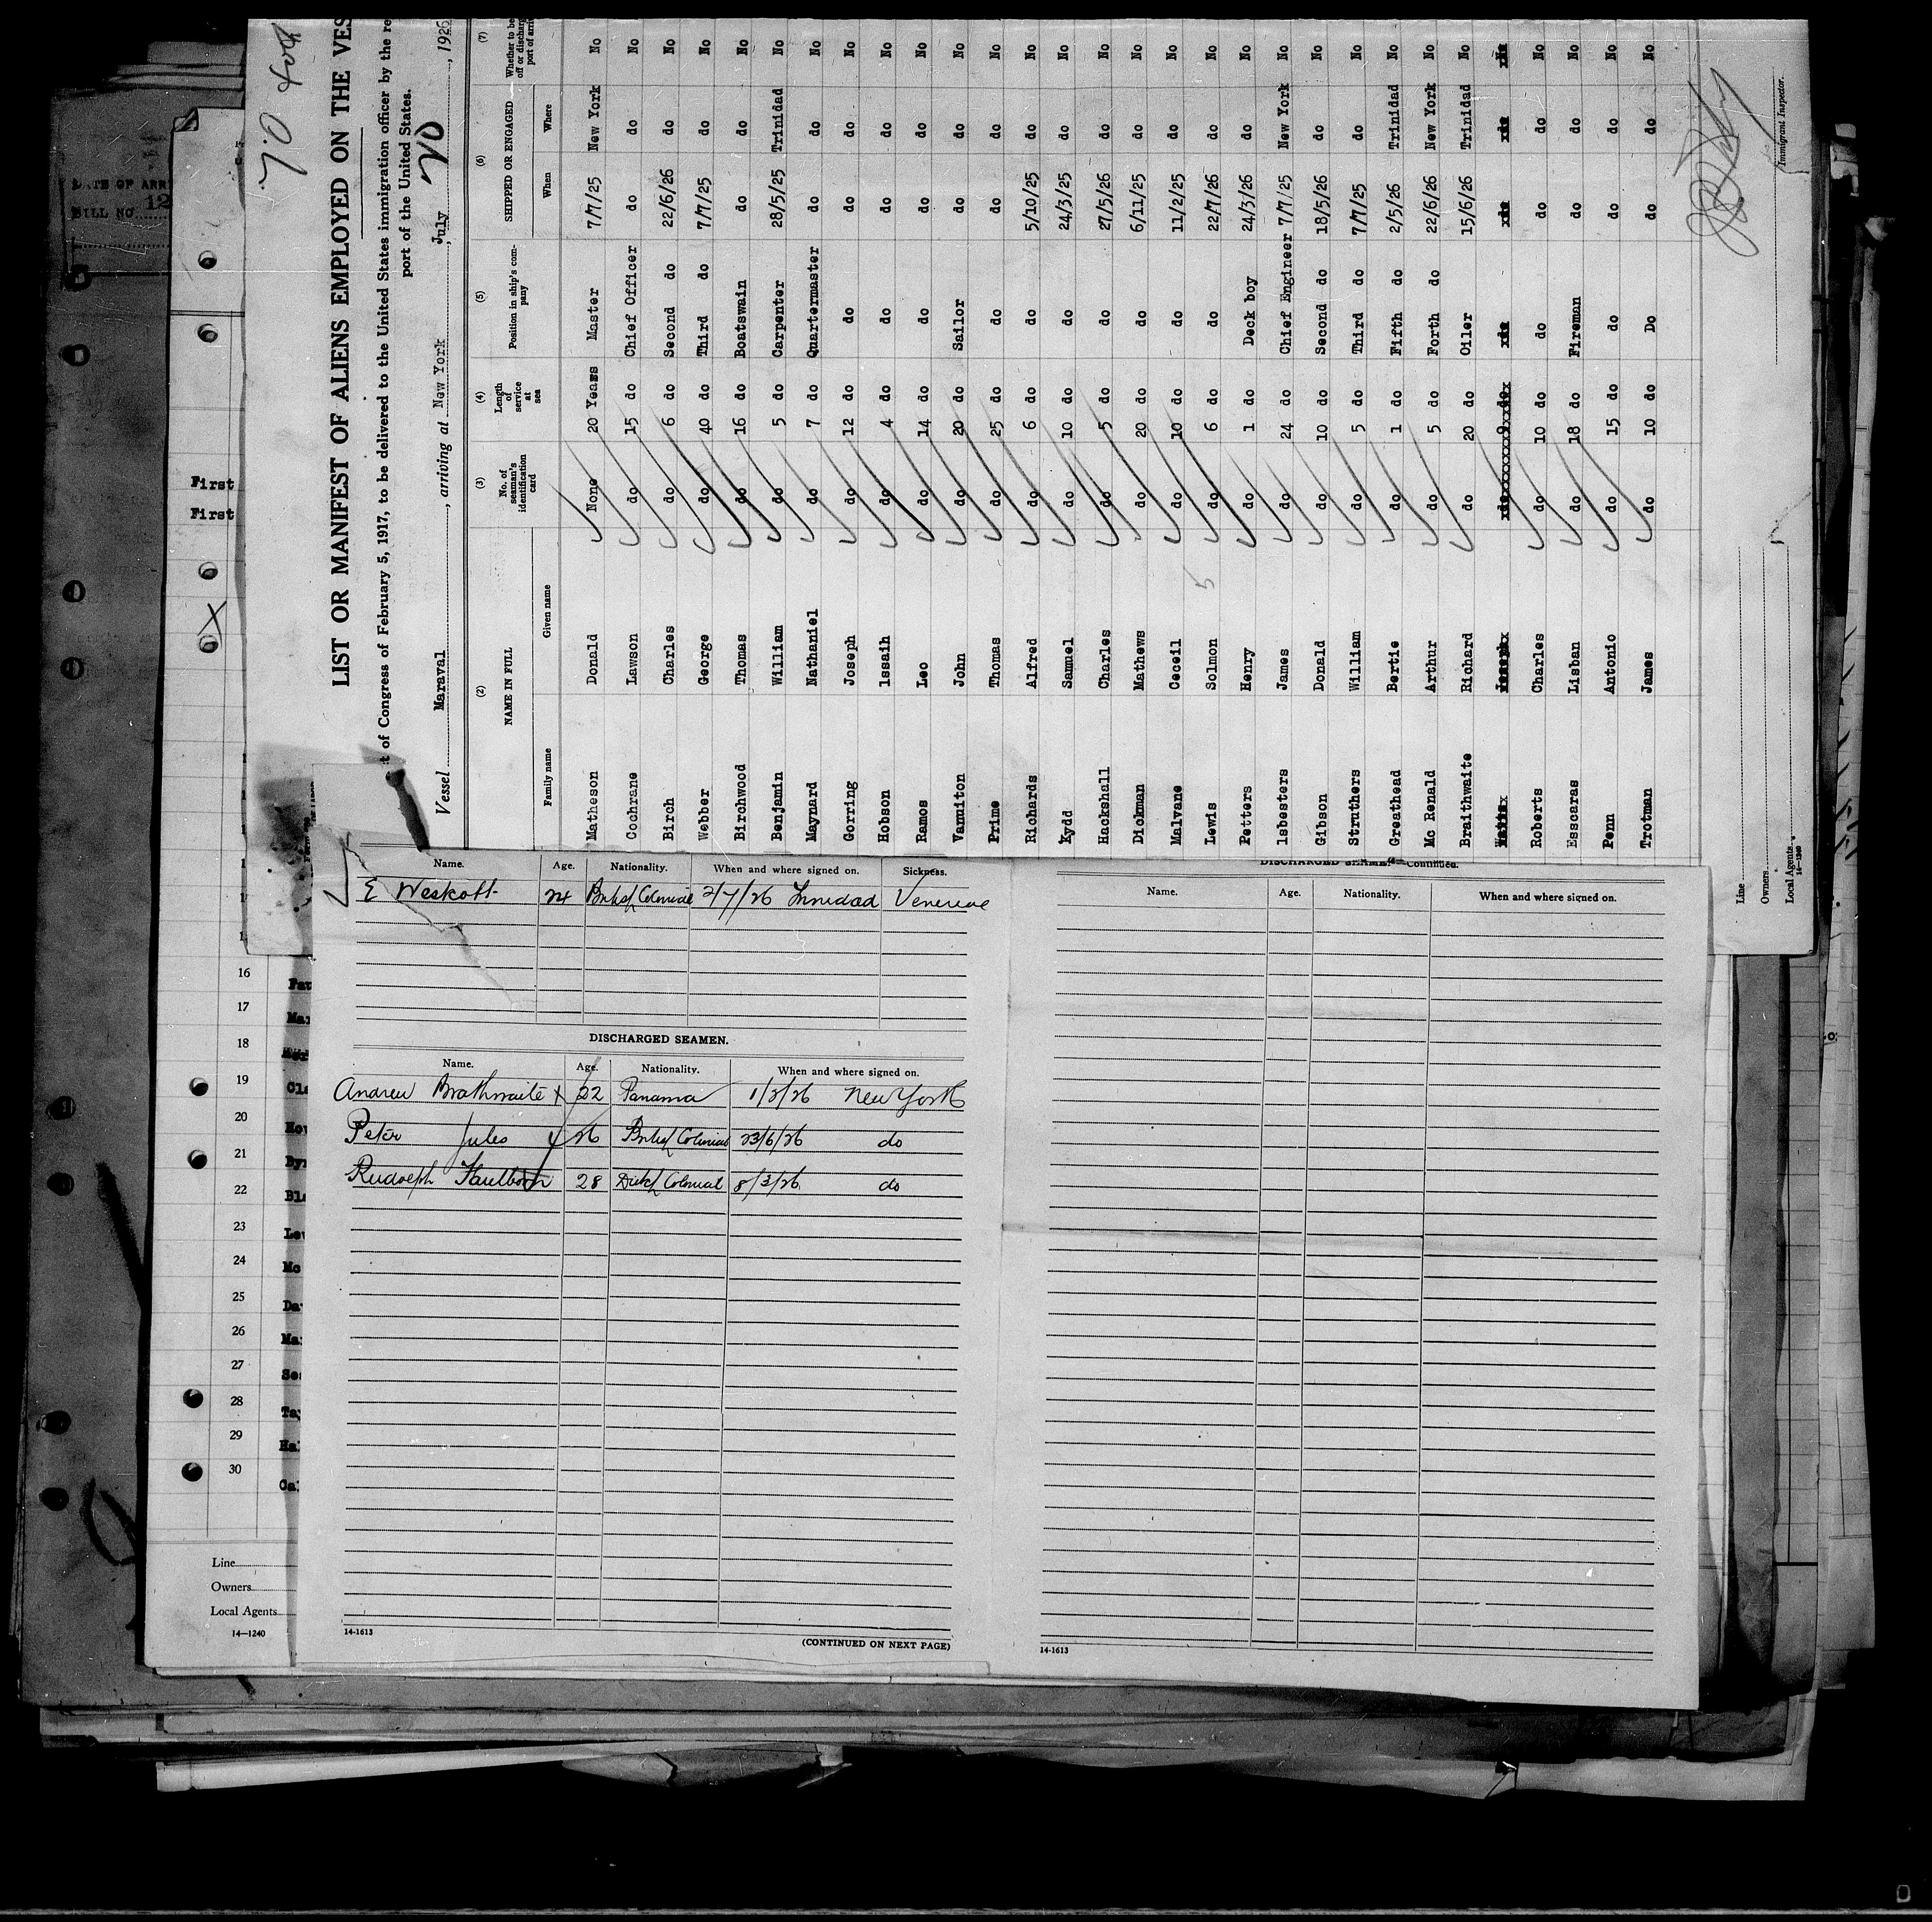 LIST OR MANIFEST OF ALIENS EMPLOYED ON THE VES
t of Congress of February 5, 1917, to be delivered to the United States immigration officer by the re
port of the United States.
Vessel Maraval, arriving at New York, July 20, 1926
(2) (3) (4) (5) (6) (7)
NAME IN FULL No. of seaman's identification card Length of service at sea Position in ship's company SHIPPED OR ENGAGED Whether to be off or discharg port of arri
Family name Given name When Where
Matheson Donald None 20 Years Master 7/7/25 New York No
Cochrane Lawson do 15 do Chief Officer do do No
Birch Charles do 6 do Second do 22/6/26 do No
Webber George do 40 do Third do 7/7/25 do No
Birchwood Thomas do 16 do Boatswain do do No
Benjamin William do 5 do Carpenter 28/5/25 Trinidad No
Maynard Nathaniel do 7 do Quartermaster do do No
Gorring Joseph do 12 do do do do No
Hobson Issaih do 4 do do do do No
Ramos Leo do 14 do do do do No
Vanuiton John do 20 do Sailor do do No
Prime Thomas do 25 do do do do No
Richards Alfred do 6 do do 5/10/25 do No
Kydd Samuel do 10 do do 24/3/25 do No
Hackshall Charles do 5 do do 27/5/26 do No
Dickman Mathews do 20 do do 6/11/25 do No
Malvane Ceceil do 10 do do 11/2/25 do No
Lewis Solmon do 6 do do 22/7/26 do No
Petters Henry do 1 do Deck boy 24/3/26 do No
Isbesters James do 24 do Chief Engineer 7/7/25 New York No
Gibson Donald do 10 do Second do 18/5/26 do No
Struthers William do 5 do Third do 7/7/25 do No
Greathead Bertie do 1 do Fifth do 2/5/26 Trinidad No
Mc Renald Arthur do 5 do Forth do 22/6/26 New York No
Braithwaite Richard do 20 do Oiler 15/6/26 Trinidad No
Roberts Charles do 10 do do do do No
Esscaras Lisban do 18 do Fireman do do No
Penn Antonio do 15 do do do do No
Trotman James do 10 do Do do do No
Immigrant Inspector.
Line
Owners
Local Agents
14-1240
Name. Age. Nationality. When and where signed on. Sickness.
E Weskott 24 British Colonial 2/7/26 Trinidad Venereae
DISCHARGED SEAMEN.
Name. Age. Nationality. When and where signed on.
Andrew Brathwaite x 22 Panama 1/2/26 New York
Peter Jules x 26 British Colonial 23/6/26 do
Rudolph 28 Dutch Colonial 8/3/26 do
14-1613
(CONTINUED ON NEXT PAGE)
DISCHARGED SEAMEN—Continued.
Name. Age. Nationality. When and where signed on.
14-1613
DATE OF ARR
BILL NO. 12
First
First
16
17
18
19
20
21
22
23
24
25
26
27
28
29
30
Line
Owners
Local Agents
14—1240